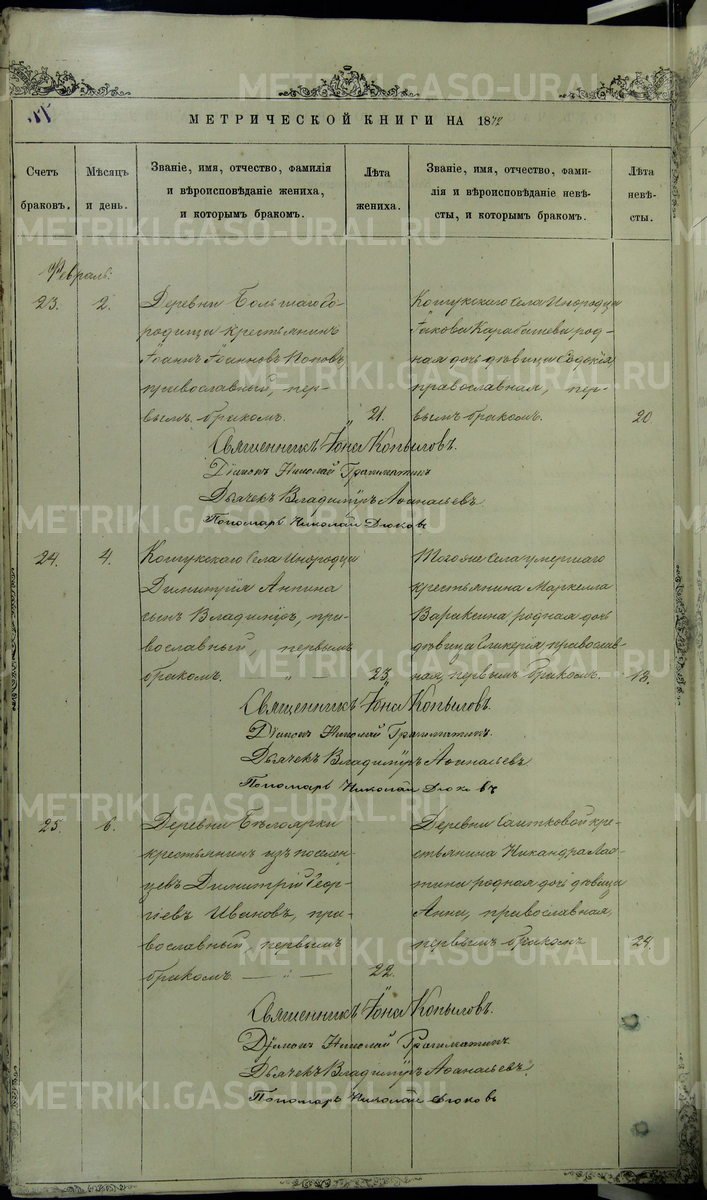 METRIKI.GASO-URAL.RU
МЕТРИЧЕСКОЙ КНИГИ НА 1872
Счетъ браковъ.
Мѣсяцъ и день.
Званіе, имя, отчество, фамилія
и вѣроисповѣданіе жениха,
и которымъ бракомъ.
Лѣта жениха.
Званіе, имя, отчество, фами-
лія и вѣроисповѣданіе невѣ-
сты, и которымъ бракомъ.
Лѣта невѣ-
сты.
Февраль.
23. 2.
Деревни Большаго Го-
родища крестьянинъ
Іоаннъ Іоанновъ Поповъ,
православный, пер-
вымъ бракомъ.
21.
Кошукскаго села инородца
Іакова Карабашева род-
ная дочь дѣвица
православная, пер-
вымъ бракомъ.
20
Священникъ Іона Копыловъ.
Діаконъ Николай Грамматинъ
Дьячекъ Владиміръ Аѳанасьевъ
Пономарь Николай Дюковъ
24. 4.
Кошукскаго села инородца
Димитрія Анпина
сынъ Владиміръ, пра-
вославный, первымъ
бракомъ. — " —
23.
Тогоже села умершаго
крестьянина Маркелла
Вараксина родная дочь
дѣвица Гликерія, православ-
ная, первымъ бракомъ.
18.
Священникъ Іона Копыловъ.
Діаконъ Николай Грамматинъ.
Дьячекъ Владиміръ Аѳанасьевъ
Пономарь Николай Дюковъ
25. 6.
Деревни Бѣлоярки
крестьянинъ изъ поселен-
цевъ Димитрій Геор-
гіевъ Ивановъ, пра-
вославный, первымъ
бракомъ. — " —
22.
Деревни Саитковой кре-
стьянина Никандра
родная дочь дѣвица
Анна, православная,
первымъ бракомъ
24.
Священникъ Іона Копыловъ.
Діаконъ Николай Грамматинъ
Дьячекъ Владиміръ Аѳанасьевъ.
Пономарь Николай Дюковъ